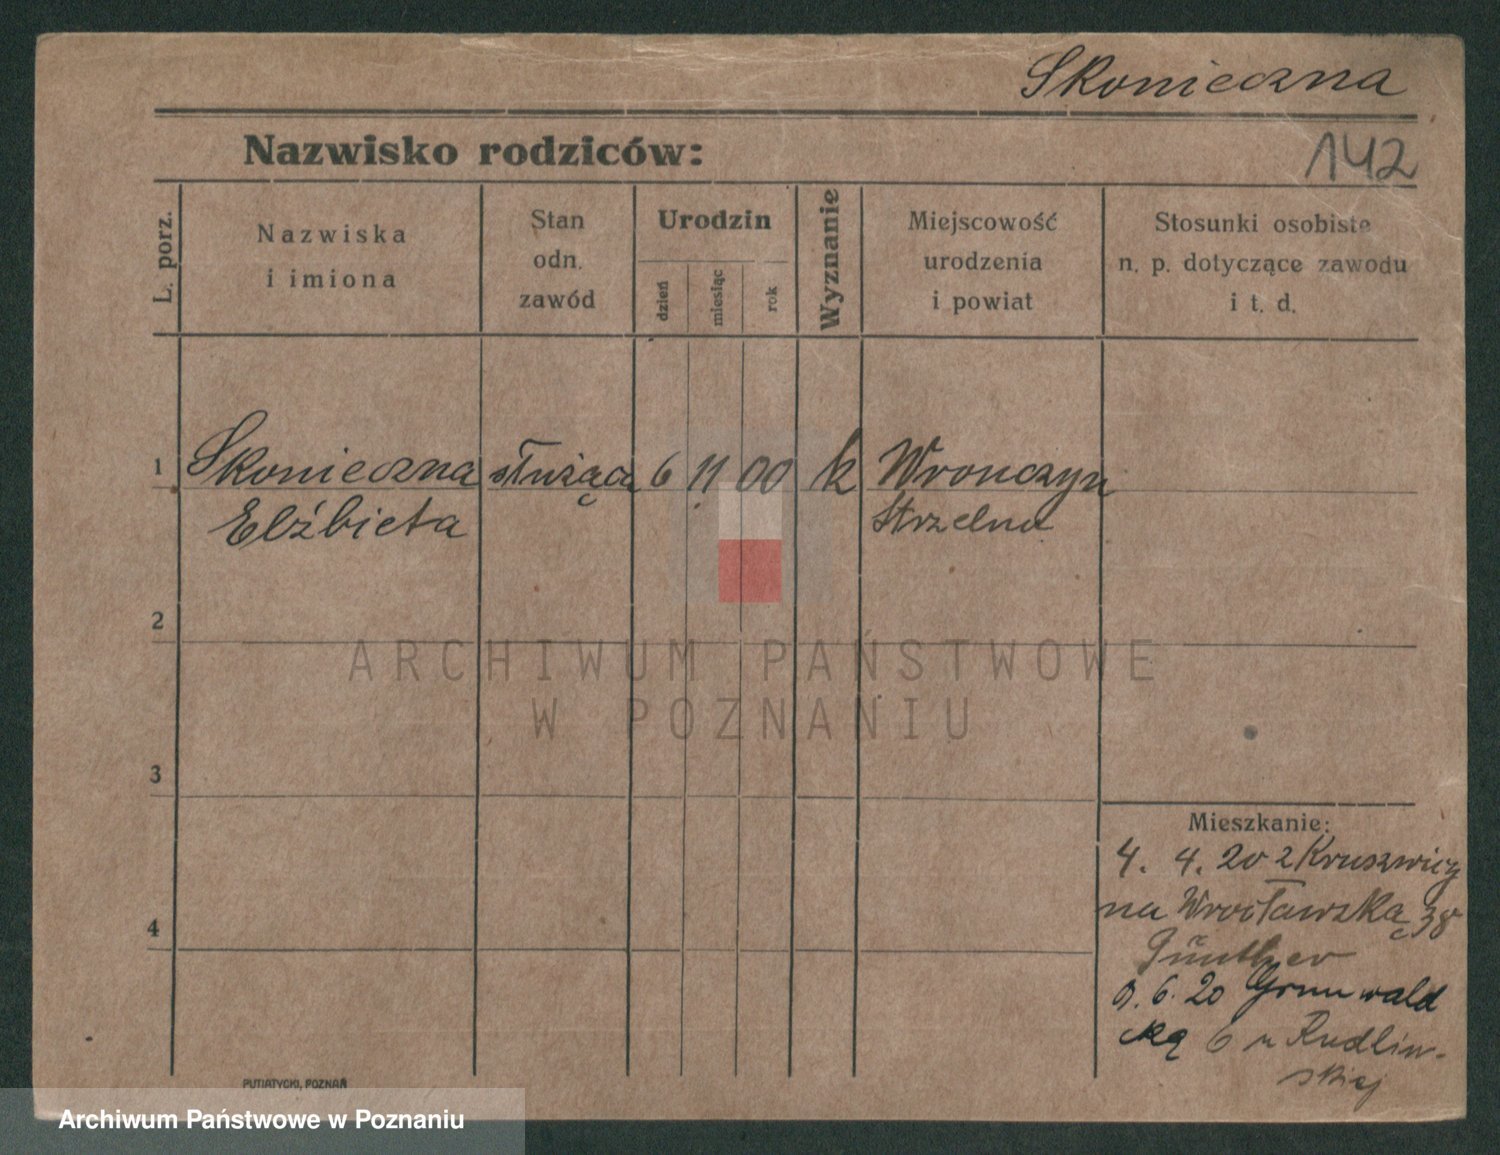 Skonieczna
142
Nazwisko rodziców:
L. porz.
Nazwiska
i imiona
Stan
odn.
zawód
Urodzin
dzień
miesiąc
rok
Wyznanie
Miejscowość
urodzenia
i powiat
Stosunki osobiste
n. p. dotyczące zawodu
i t. d.
1 Skonieczna służąca 6 11 00 k Wronczyn
Elżbieta Strzelno
2
ARCHIWUM PAŃSTWOWE
W POZNANIU
3
Mieszkanie:
4. 4. 20 z Kruszwicy
na Wrocławską 38
Günther
4
6. 20 Grunwald
ską 6 u Rudlin-
skiej
PUTIATYCKI, POZNAŃ
Archiwum Państwowe w Poznaniu